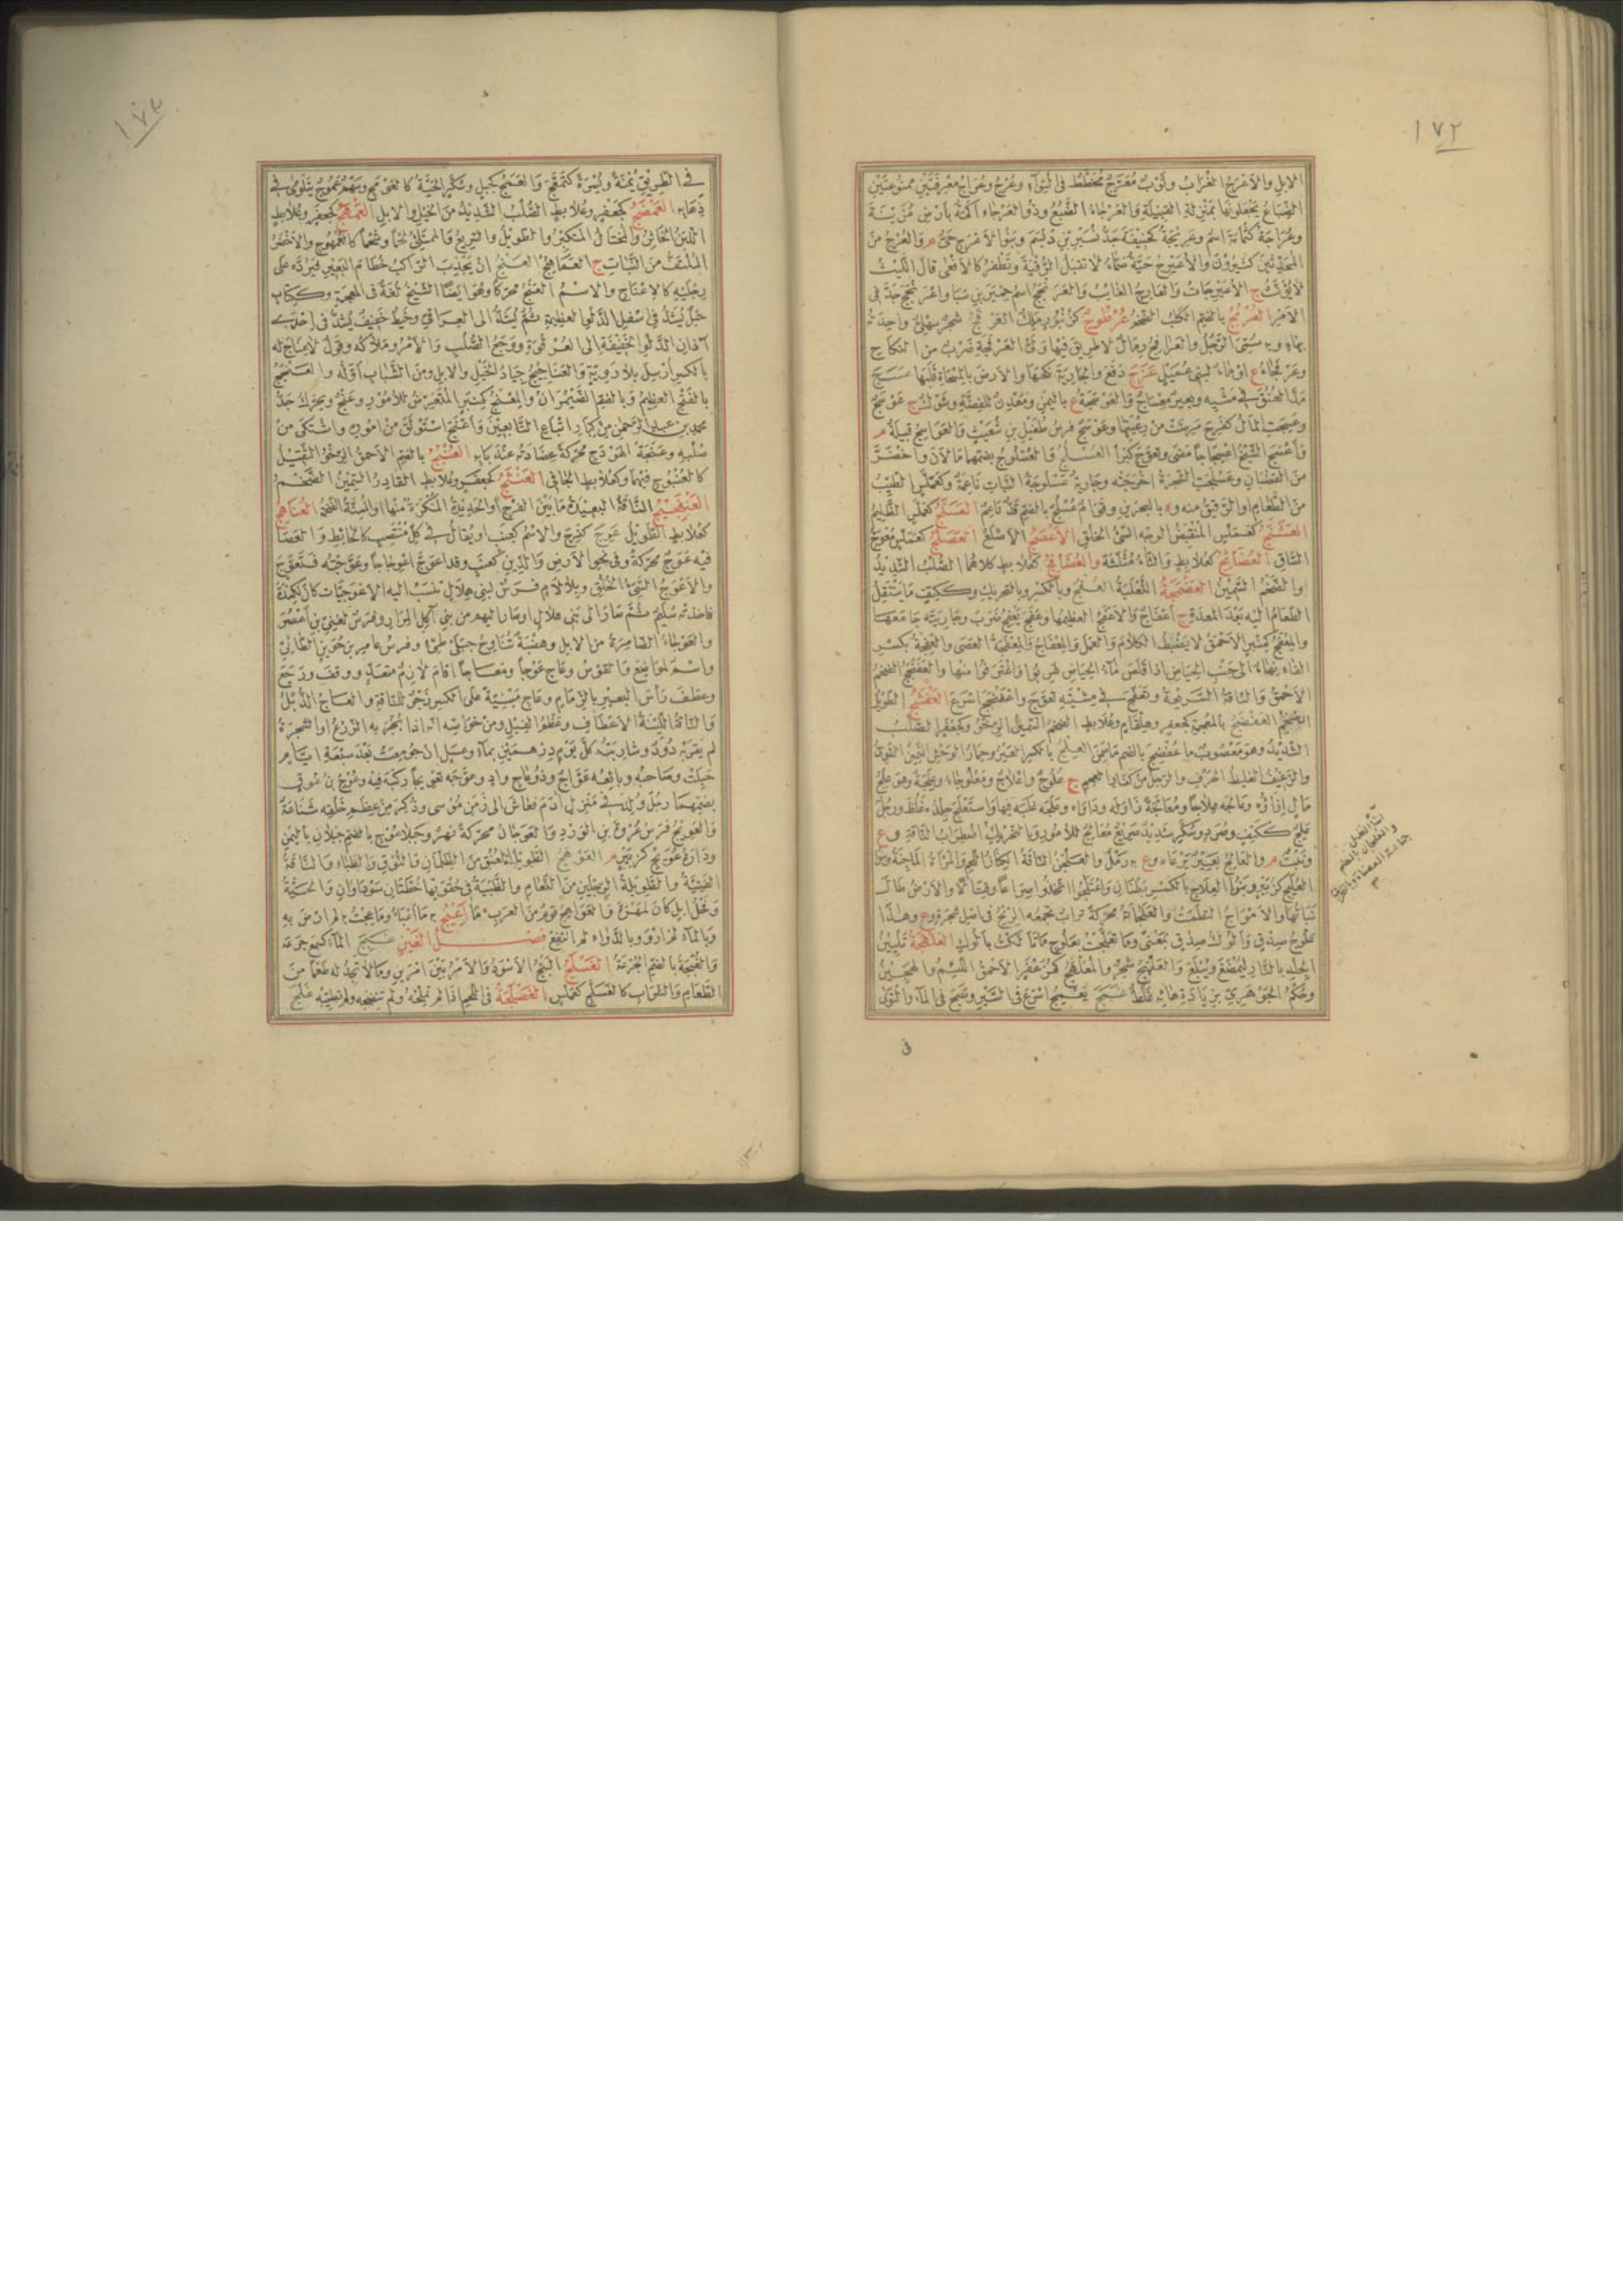 ١٧٢
الابل والاعرج الغراب وثوب معرج مخطط فى التواء وعرج وعراج معرفتين ممنوعتين
الضباع يجعلونها بمنزلة القبيلة والعرجاء الضبع وذو العرجاء اكمة بارض مزينة
وعراجة كثمامة اسم وعريجة كحنيفة جد نسير بن ديسم وبنو الاعرج حى م والعرج من
المحدثين كثيرون والاعيرج حية صماء لا تقبل الرقية وتطفر كالافعى قال الليث
لا يؤنث ج الاعيرجات والعارج الغايب والعرنجج اسم حمير بن سبا واعرنجج جد فى
الامر العربج بالضم الكلب الضخم عرطوج كزنبور ملك العرفج شجر سهلى واحدته
بهاء وبه سمى الرجل والعرافج رمال لا طريق فيها ولى العرفجة ضرب من النكاح
وعرفجاء ع او ماء لبنى عميل عزج دفع والجارية نكحها والارض بالمسحاة قلبها عسج
مد العنق فى مشيه وبعير معساج والعوسجة ع باليمن ومعدن للفضة وشوك ج عوسج
وعسج المال كفرح مرضت من رعيتها وعوسج فرس طفيل بن شعيث والعواسج قبيلة م
واعسج الشيخ اعسجاجا مضى وتعوج كبرا العسلج والعسلوج بضمهما ما لان واخضر
من القضبان وعسلجت الشجرة اخرجته وجارية عسلوجة النبات ناعمة وكعملس الطيب
من الطعام او الرقيق منه وة بالبحرين وقوام عسلج بالضم قد ناعم العسنج كعملس الظليم
العشنج كعملس المتقبض الوجه السئ الخلق الاعصج الاصلع العصلج كعملس المعوج
الساق العضافج كعلابط والثاء مثلثة والعضافج كعلابط كلاهما الصلب الشديد
او الضخم السمين العضمجة الثعلبة العفج وبالكسر وبالتحريك وككتف ما ينتقل
الطعام اليه بعد المعدة ج اعفاج والاعفج العظيمها وعفج يعفج ضرب وجاريته جامعها
والمعفج كمنبر الاحمق لا يضبط الكلام والعمل والمعفاج والمعفجة العصى والعفجة بكسر
الفاء نهاء الى جنب الحياض اذا قلص ماء الحياض شربوا واغترفوا منها والعفنجج الضخم
الاحمق والناقة السريعة وتعفج فى مشيته تعوج واعفنجج اسرع العفشج الطويل
الضخم العفضج بالمعجمة كجعفر وهلقام وعلابط الضخم السمين الرخو وكجعفر الصلب
الشديد وهو معصوب ما عفضج بالضم ما سمن العلج بالكسر العير وحمار الوحش السمين القوى
والرغيف الغليظ الحرف والرجل من كفار العجم ج علوج واعلاج ومعلوجاء وعلجة وهو علج
مال ازاؤه وعالجه علاجا ومعالجة زاوله وداواه وعلجه غلبه فيها واستعلج جلده غلظ ورجل
علج ككتف وصرد وسكر شديد صريع معالج للامور وبالتحريك
ونبت م والعالج بعير يرعاه وع به رمل والعلجن الناقة الكناز اللحم والمراة الماجنة وبنو
العليج كزبير وبنو العلاج بالكسر بطنان واعتلجوا اتخذوا صراعا وقتالا والارض طال
نباتها والامواج التطمت والعلجانة محركة تراب تجمعه الريح فى اصل شجرة وع وهذا
علوج صدق والوك صدق بمعنى وما تعلجت بعلوج ما تالكت بالوك العلهجة تليين
الجلد بالنار ليمضغ ويبلع والعلهج شجر والمعلهج كمزعفر الاحمق اللئيم والهجين
وحكم الجوهرى بزيادة هائه غلط عمج يعمج اسرع فى السير وسبح فى الماء والتوى
فى
والعلجان بالضم
جماعة العضاه وبالتحريك
١٧٣
فى الطريق يمنة ويسرة كتعمج والعمج كجبل وسكر الحية كالعومج وسهم عموج يتلوى فى
ذهابه العمضج كجعفر وعلابط الصلب الشديد من الخيل والابل العمهج كجعفر وعلابط
اللبن الخاثر والمختال المتكبر والطويل والسريع والممتلئ لحما وشحما كالعمهوج والاخضر
الملتف من النبات ج العماهج العنج ان يجذب الراكب خطام البعير فيرده على
رجليه كالاعناج والاسم العنج محركا وهو ايضا الشيخ لغة فى المعجمة وككتاب
حبل يشد فى اسفل الدلو العظيمة ثم يشد الى العراقى وخيط خفيف يشد فى احدى
اذان الدلو الخفيفة الى العرقوة ووجع الصلب والامر وملاكه وقول لا عناج له
بالكسر ارسل بلا روية والعناجيج جياد الخيل والابل ومن الشباب اوله والعنبج
بالفتح العظيم وبالضم الضيمران والمعنج كمنبر المتعرض للامور وعنج ويحرك جد
محمد بن عبد الرحمن من كبار اتباع التابعين واعنج استوثق من اموره واشتكى من
صلبه وعنجة الهودج محركة عضادته عند بابه العنبج بالضم الاحمق الرخو الثقيل
كالعنبوج فيهما وكعلابط الجافى العنشج كجعفر وعلابط القادر السمين الضخم
العنفجيج الناقة البعيدة ما بين الفروج او الحديدة المنكرة منها او المسنة الضخمة العناهج
كعلابط الطويل عوج كفرح والاسم كعنب او يقال فى كل منتصب كالحائط والعصا
فيه عوج محركة وفى نحو الارض والدين كعنب وقد اعوج اعوجاجا وعوجته فتعوج
والاعوج السئ الخلق وبلا لام فرس لبنى هلال تنسب اليه الاعوجيات كان لكندة
فاخذته سليم ثم صار الى بنى هلال او صار اليهم من بنى اكل المرار وفرس لغنى بن اعصر
والعوجاء الضامرة من الابل وهضبة تناوح جبلى طيئ وفرس عامر بن جوين الطائى
واسم لمواضع والقوس وعاج عوجا ومعاجا اقام لازم متعد ووقف ورجع
وعطف راس البعير بالزمام وعاج مبنية على الكسر زجر للناقة والعاج الذبل
والناقة اللينة الاعطاف وعظم الفيل ومن خواصه انه اذا بخر به الزرع او الشجرة
لم يقربه دود وشاربته كل يوم درهمين بماء وعسل ان جومعت بعد سبعة ايام
حبلت وصاحبه وبائعه عواج وذو عاج واد وعوجه تعويجا ركبه فيه وعوج بن عوق
بضمهما رجل ولد فى منزل ادم فعاش الى زمن موسى وذكر من عظم خلقه شناعة
والعويج فرس عروة بن الورد والعوجان محركة نهر وجبلا عوج بالضم جبلان باليمن
ودارة عويج كزبير م العوهج الطويلة العنق من الظلمان والنوق والظباء والناقة
الفتية والطويلة الرجلين من النعام والظبية فى حقويها خطتان سوداوان والحية
وفحل ابل كان لمهرة والعواهج قوم من العرب ما اعيج به ما اعبا وما عجت به لم ارض به
وبالماء لم ارو وبالدواء لم انتفع فصل الغين غبج الماء كسمع جرعه
والغبجة بالضم الجرعة الغسلج البنج الاسود والامر بين امرين وما لا تجد له طعما من
الطعام والشراب كالغسلج كعملس الغضلجة فى اللحم اذا لم تملحه ولم تنضجه ولم تطيبه غلج